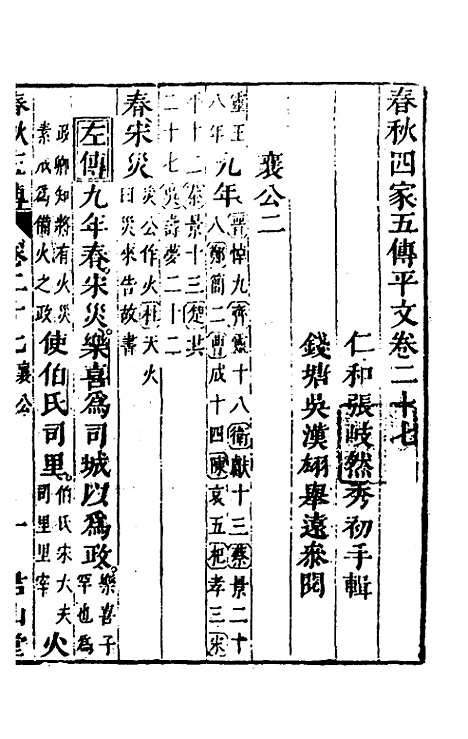 春秋四家五傳平文卷二十七
仁和張岐然秀初手輯
錢塘吳漢翃舉遠叅閱
襄公二
靈王八年
九年
晉悼九齊靈十八衛獻十三蔡景二十
八鄭簡二曹成十四陳哀五杞孝三宋
平十二秦景十三楚共
二十七吳壽夢二十二
春宋災
災公作火杜天火
曰災來告故書
左傳九年春宋災樂喜爲司城以爲政
樂喜子
罕也爲
政卿知將有火災
素戒爲備火之政
使伯氏司里
伯氏宋大夫
司里里宰
火
春秋五傳 卷二十七 襄公 一 君山堂